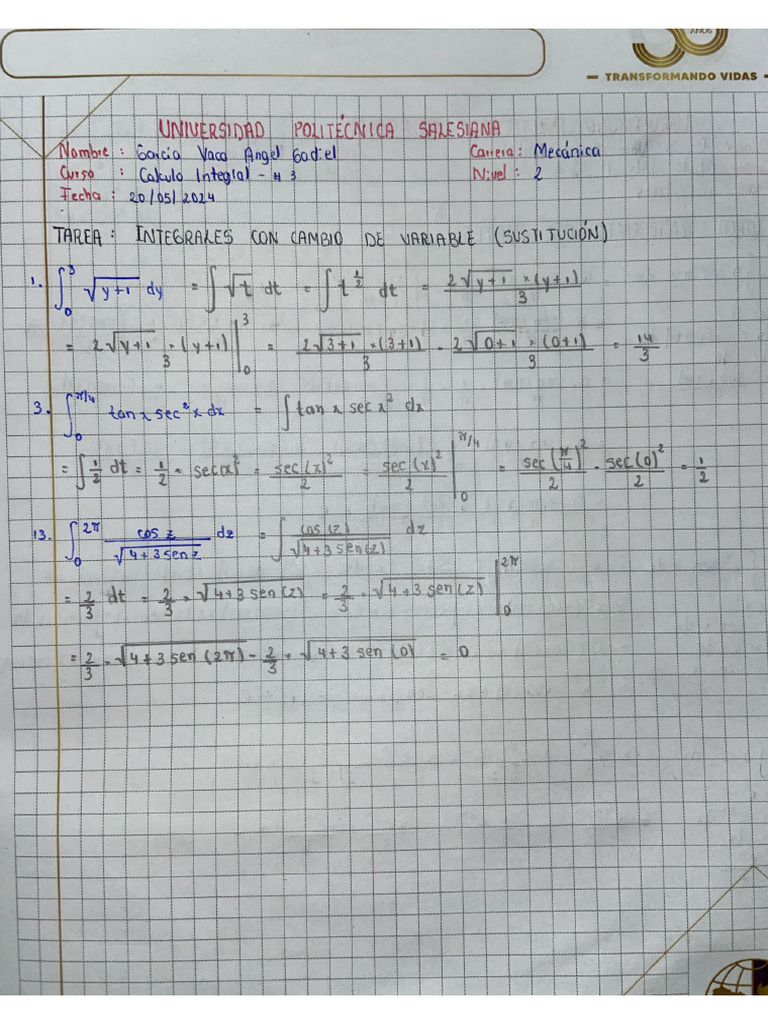 AÑOS
TRANSFORMANDO VIDAS
UNIVERSIDAD POLITÉCNICA SALESIANA
Nombre : Garcia Vaca Angel Gadiel Carrera : Mecánica
Curso : Calculo Integral - #3 Nivel : 2
Fecha : 20/05/2024
TAREA : INTEGRALES CON CAMBIO DE VARIABLE (SUSTITUCIÓN)
1. ∫₀³ √(y+1) dy = ∫ √t dt = ∫ t^(1/2) dt = 2√(y+1) × (y+1) / 3
= 2√(y+1) × (y+1) / 3 |₀³ = 2√(3+1) × (3+1) / 3 - 2√(0+1) × (0+1) / 3 = 14/3
3. ∫₀^(π/4) tan x sec² x dx = ∫ tan x sec x² dx
= ∫ 1/2 dt = 1/2 × sec(x)² = sec(x)²/2 = sec(x)²/2 |₀^(π/4) = sec(π/4)²/2 - sec(0)²/2 = 1/2
13. ∫₀^(2π) cos z / √(4+3 sen z) dz = ∫ cos(z) / √(4+3 sen(z)) dz
= 2/3 dt = 2/3 × √(4+3 sen(z)) = 2/3 × √(4+3 sen(z)) |₀^(2π)
= 2/3 × √(4+3 sen(2π)) - 2/3 × √(4+3 sen(0)) = 0